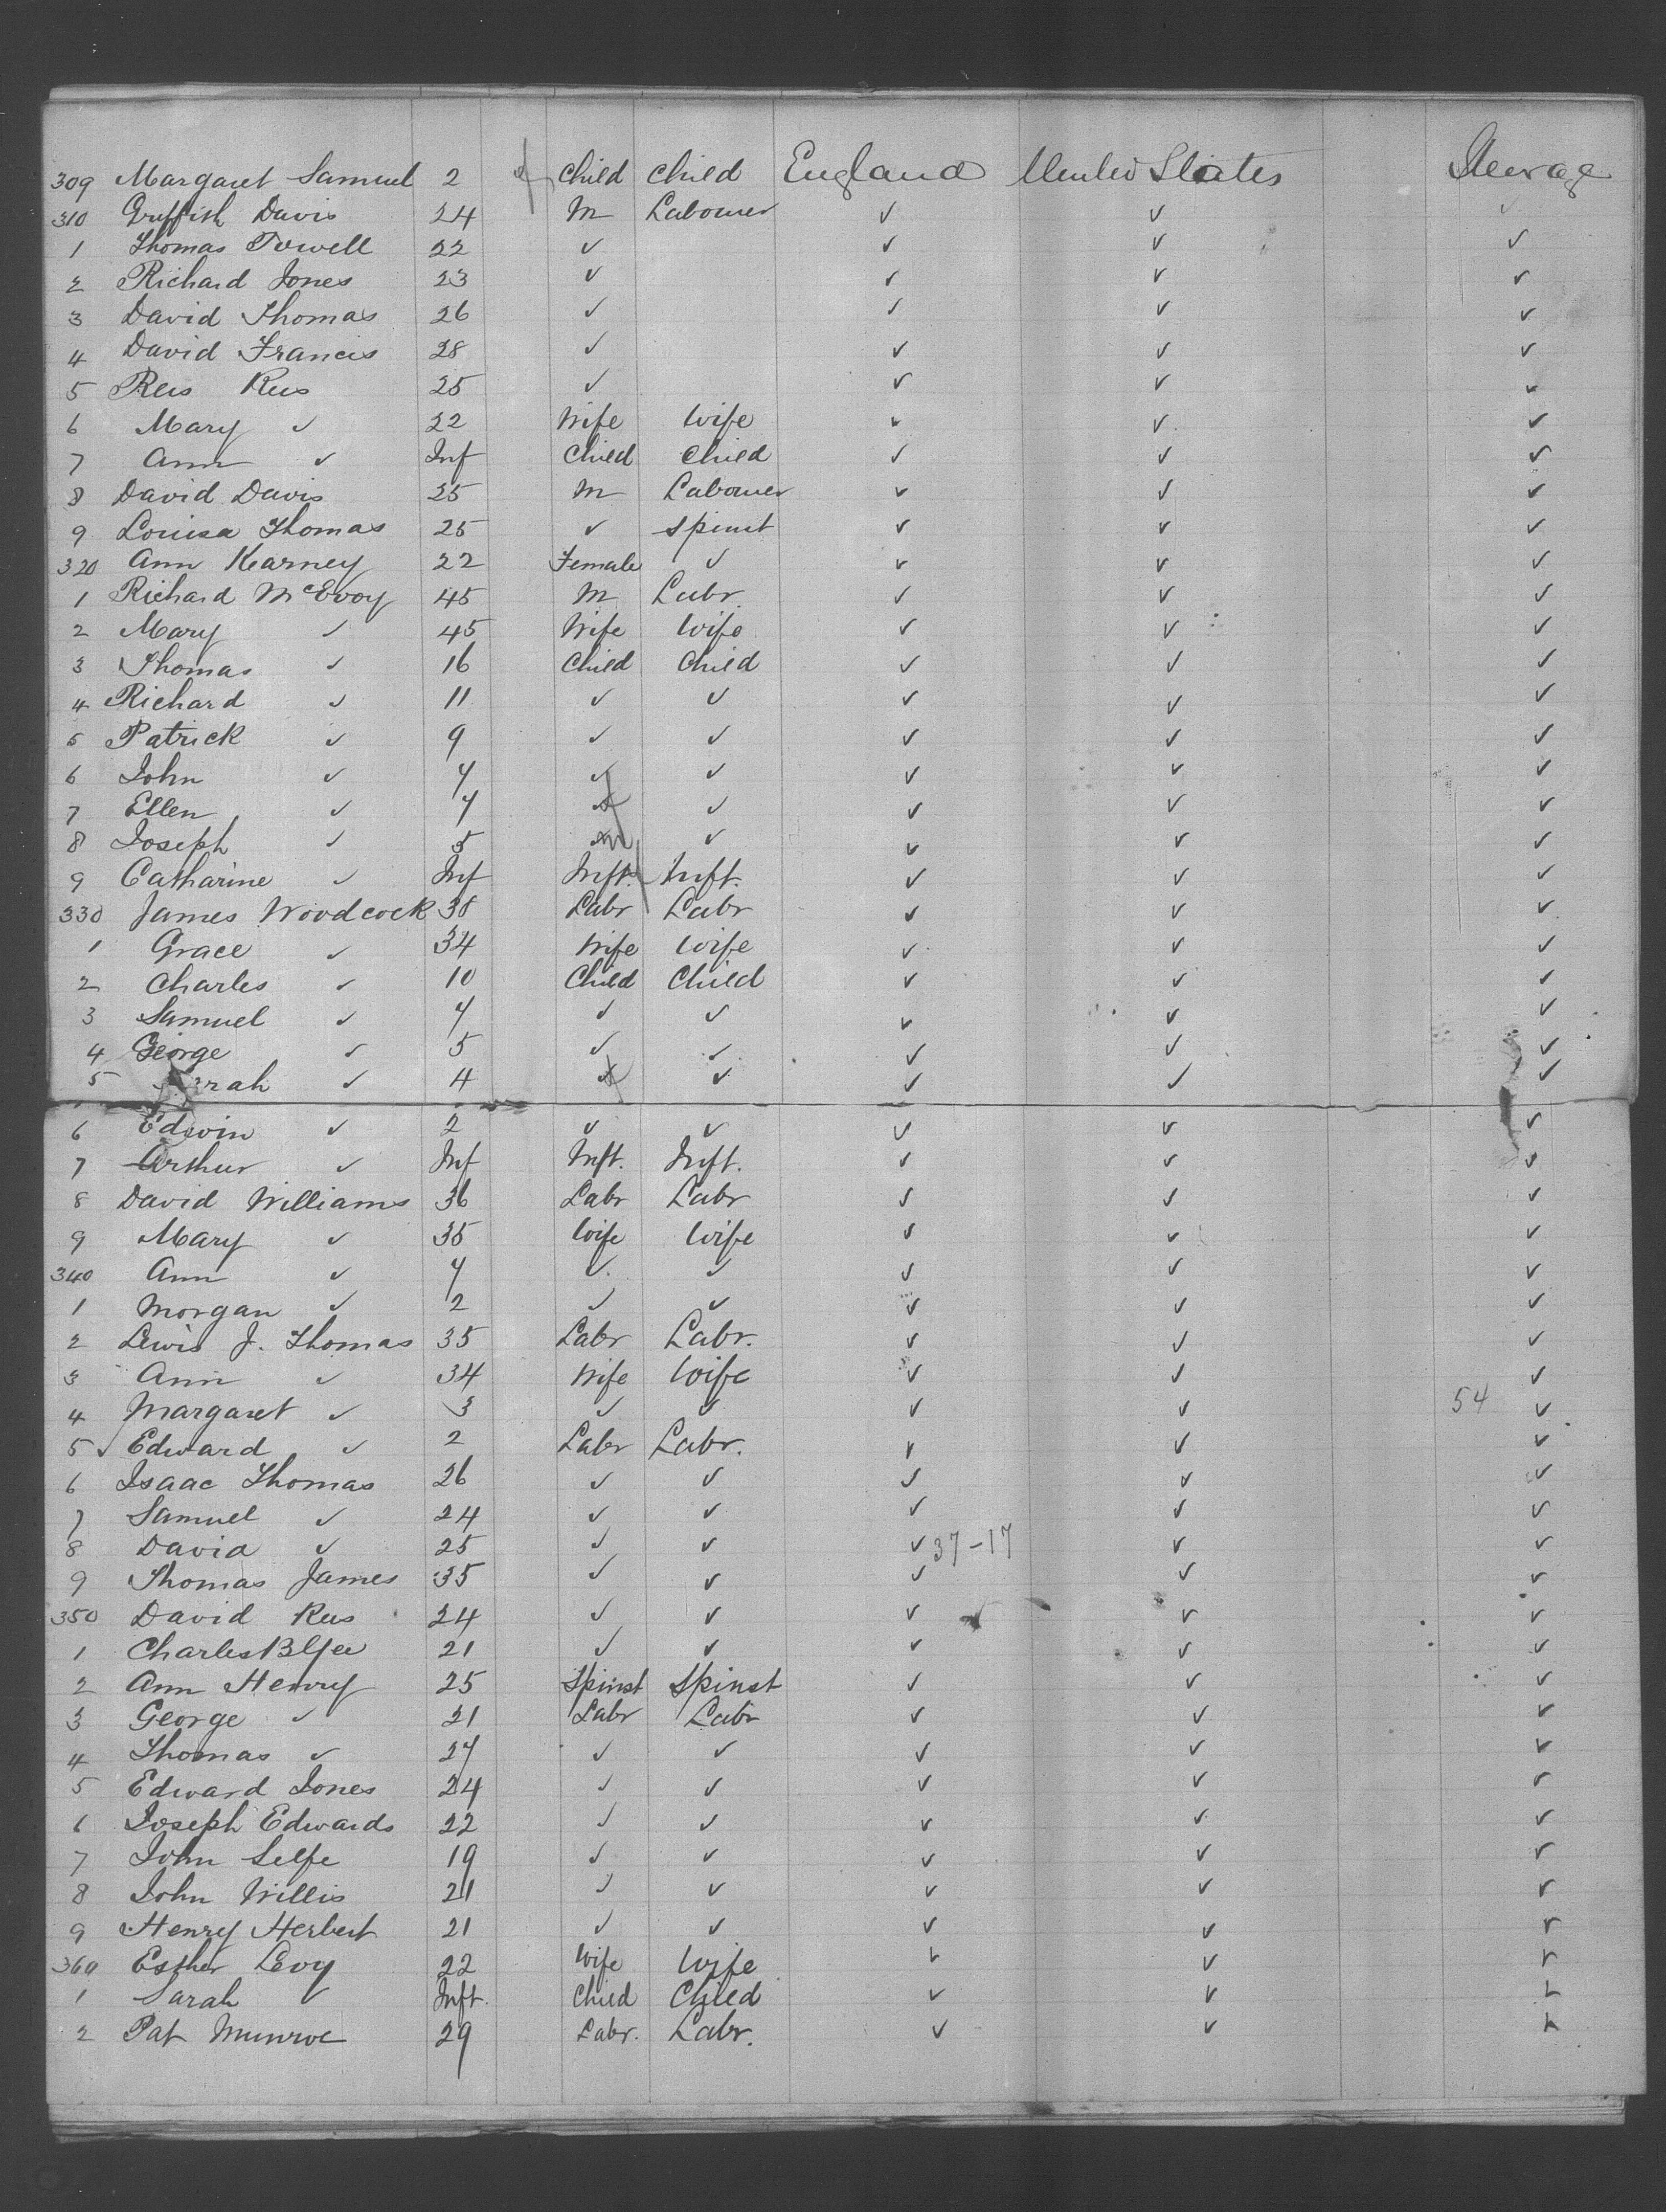 309 Margaret Samuel 2 Child Child England United States Steerage
310 Griffith Davis 24 M Labourer ✓ ✓ ✓
1 Thomas Powell 22 ✓ ✓ ✓ ✓
2 Richard Jones 23 ✓ ✓ ✓ ✓
3 David Thomas 26 ✓ ✓ ✓ ✓
4 David Francis 28 ✓ ✓ ✓ ✓
5 Rees Rees 25 ✓ ✓ ✓ ✓
6 Mary ✓ 22 Wife Wife ✓ ✓ ✓
7 Ann ✓ Inf Child Child ✓ ✓ ✓
8 David Davis 25 M Labourer ✓ ✓ ✓
9 Louisa Thomas 25 ✓ Spinst ✓ ✓ ✓
320 Ann Kearney 22 Female ✓ ✓ ✓ ✓
1 Richard McEvoy 45 M Labr. ✓ ✓ ✓
2 Mary ✓ 45 Wife Wife ✓ ✓ ✓
3 Thomas ✓ 16 Child Child ✓ ✓ ✓
4 Richard ✓ 11 ✓ ✓ ✓ ✓ ✓
5 Patrick ✓ 9 ✓ ✓ ✓ ✓ ✓
6 John ✓ 7 ✓ ✓ ✓ ✓ ✓
7 Ellen ✓ 7 ✓ ✓ ✓ ✓
8 Joseph ✓ 5 m ✓ ✓ ✓ ✓
9 Catharine ✓ Inf Inft. Inft. ✓ ✓ ✓
330 James Woodcock 38 Labr Labr ✓ ✓ ✓
1 Grace ✓ 34 Wife Wife ✓ ✓ ✓
2 Charles ✓ 10 Child Child ✓ ✓ ✓
3 Samuel ✓ 7 ✓ ✓ ✓ ✓ ✓
4 George ✓ 5 ✓ ✓ ✓ ✓ ✓
5 Sarah ✓ 4 ✓ ✓ ✓ ✓
6 Edwin ✓ 2 ✓ ✓ ✓ ✓ ✓
7 Arthur ✓ Inf Inft. Inft. ✓ ✓ ✓
8 David Williams 36 Labr Labr ✓ ✓ ✓
9 Mary ✓ 35 Wife Wife ✓ ✓ ✓
340 Ann ✓ 7 ✓ ✓ ✓ ✓ ✓
1 Morgan ✓ 2 ✓ ✓ ✓ ✓ ✓
2 Lewis J. Thomas 35 Labr Labr. ✓ ✓ ✓
3 Ann ✓ 34 Wife Wife ✓ ✓ ✓
4 Margaret ✓ 3 ✓ ✓ ✓ ✓ 54 ✓
5 ✓ Edward ✓ 2 Labr Labr. ✓ ✓ ✓
6 Isaac Thomas 26 ✓ ✓ ✓ ✓ ✓
7 Samuel ✓ 24 ✓ ✓ ✓ ✓ ✓
8 David ✓ 25 ✓ ✓ ✓ 37-17 ✓ ✓
9 Thomas James 35 ✓ ✓ ✓ ✓ ✓
350 David Rees 24 ✓ ✓ ✓ ✓ ✓
1 Charles 21 ✓ ✓ ✓ ✓ ✓
2 Ann Henry 25 Spinst Spinst ✓ ✓ ✓
3 George ✓ 21 Labr Labr ✓ ✓ ✓
4 Thomas ✓ 27 ✓ ✓ ✓ ✓ ✓
5 Edward Jones 24 ✓ ✓ ✓ ✓ ✓
6 Joseph Edwards 22 ✓ ✓ ✓ ✓ ✓
7 John Selfe 19 ✓ ✓ ✓ ✓ ✓
8 John Willis 21 ✓ ✓ ✓ ✓ ✓
9 Henry Herbert 21 ✓ ✓ ✓ ✓ ✓
360 Esther Levy 22 Wife Wife ✓ ✓ ✓
1 Sarah ✓ Inft. Child Child ✓ ✓ ✓
2 Pat Munroe 29 Labr. Labr. ✓ ✓ ✓